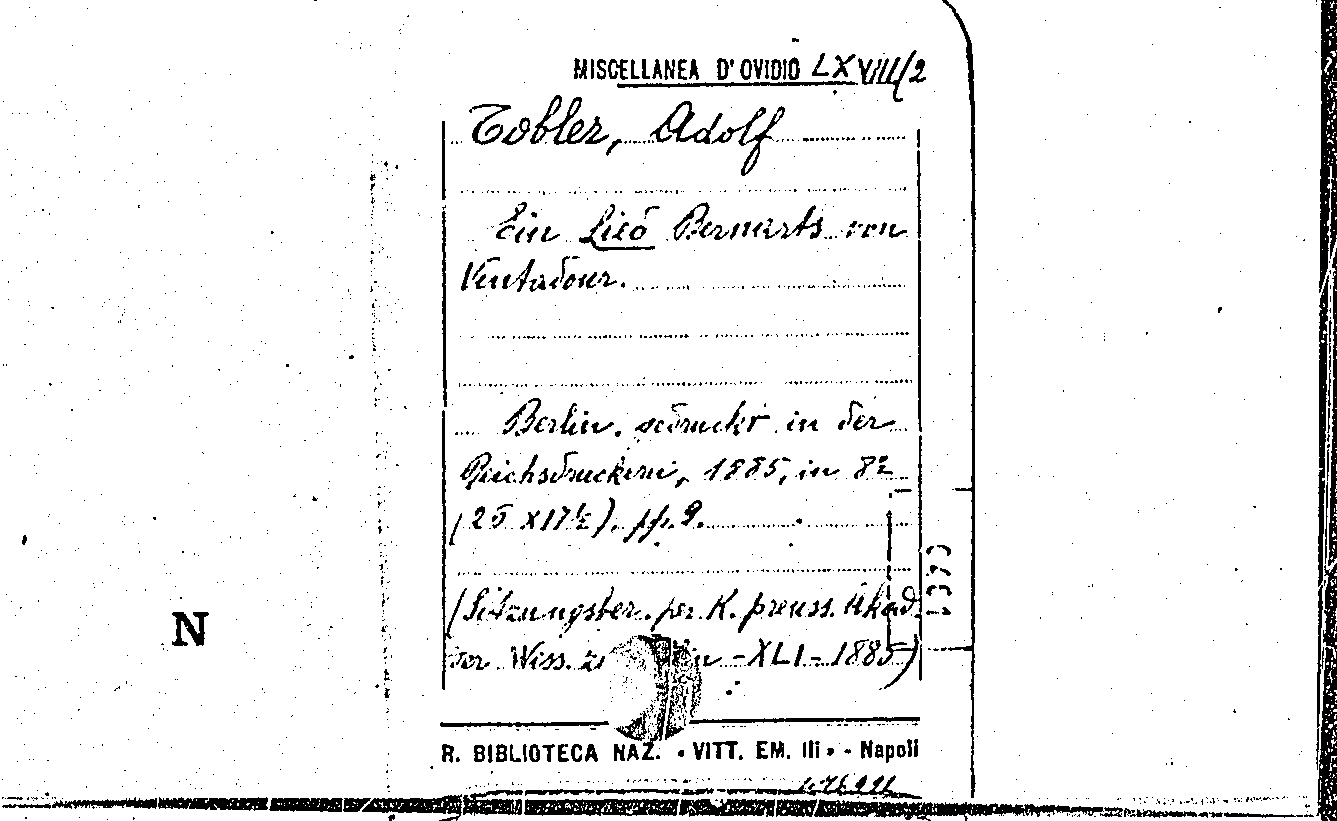 MISCELLANEA D'OVIDIO LXVIII/2
Tobler, Adolf
Ein Lied Bernarts von
Ventadour.
Berlin. gedruckt in der
Reichsdruckerei, 1885, in 8º
(25 x 17½). pp. 9.
(Sitzungsber. per K. preuss. Akad.
der Wiss. zu -XLI- 1885)
N
R. BIBLIOTECA NAZ. « VITT. EM. III » - Napoli